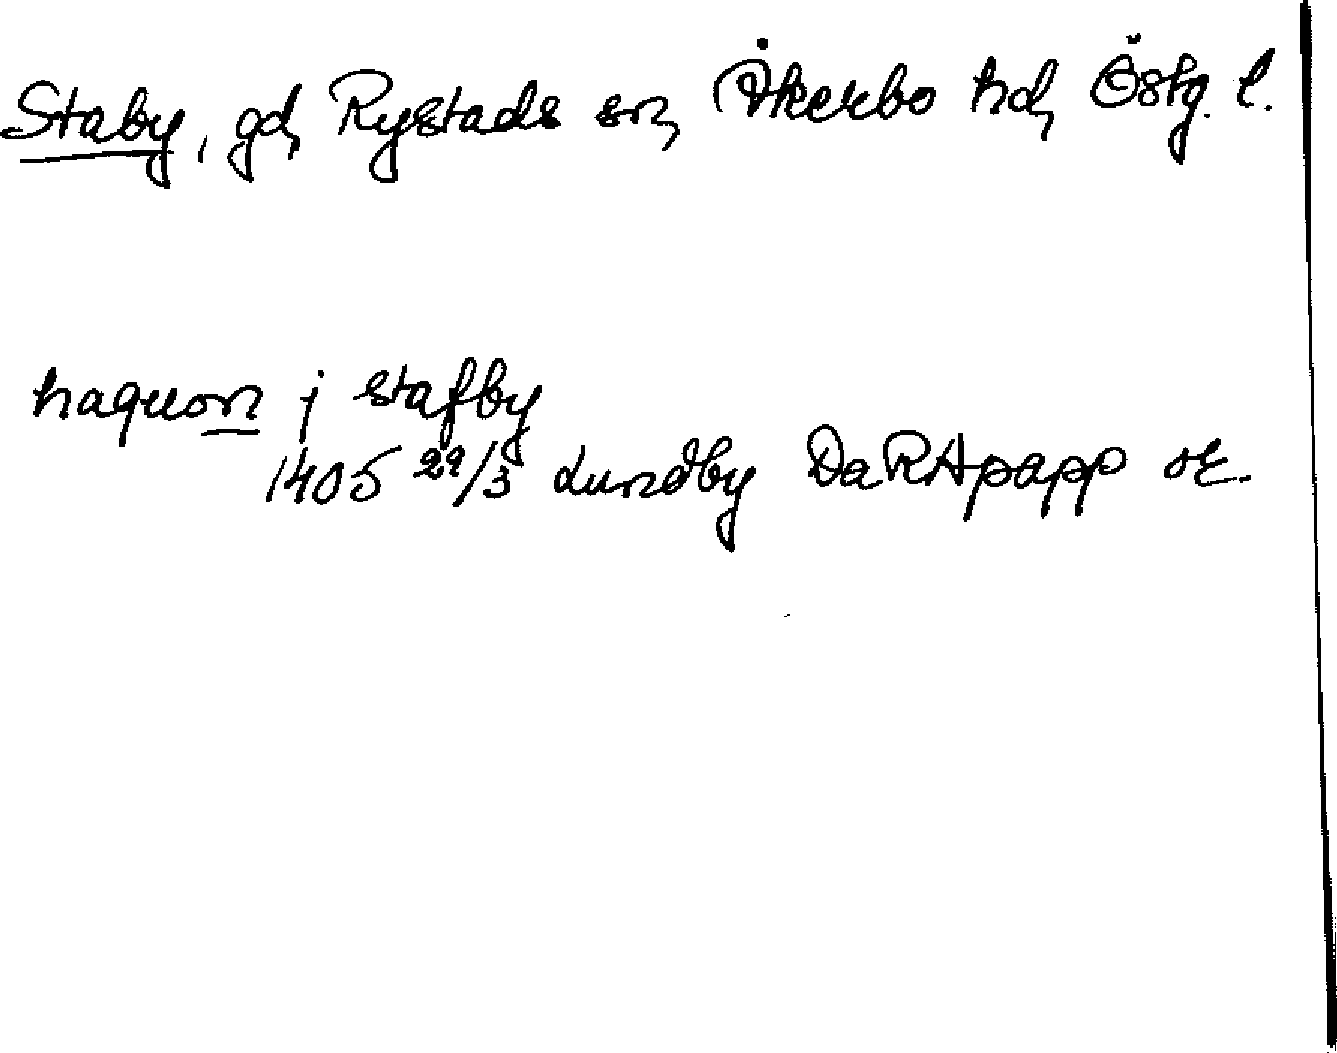 Staby, gd, Rystads sn, Åkerbo hd, Östg. l.
haquon j stafby
1405 29/3 Lundby DaRApapp or.